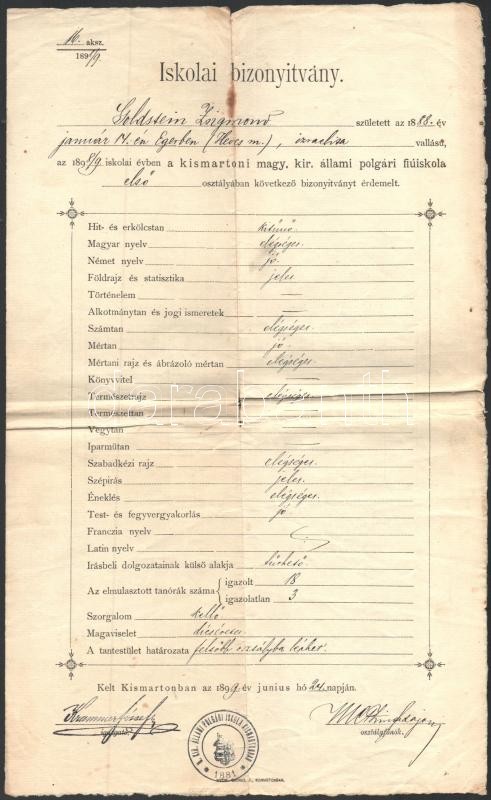 16. aksz.
1898/9
Iskolai bizonyitvány.
Goldstein Zsigmond született az 1888. év
január 17. én Egerben (Heves m.), izraelita vallásu,
az 1898/9 iskolai évben a kismartoni magy. kir. állami polgári fiúiskola
első osztályában következő bizonyitványt érdemelt.
Hit- és erkölcstan kitünő
Magyar nyelv elégséges.
Német nyelv jó.
Földrajz és statisztika jeles
Történelem —
Alkotmánytan és jogi ismeretek —
Számtan elégséges.
Mértan jó.
Mértani rajz és ábrázoló mértan elégséges.
Könyvvitel —
Természetrajz elégséges
Természettan —
Vegytan —
Iparműtan —
Szabadkézi rajz elégséges.
Szépirás jeles.
Éneklés elégséges.
Test- és fegyvergyakorlás jó
Franczia nyelv
Latin nyelv
Irásbeli dolgozatainak külső alakja tűrhető
Az elmulasztott tanórák száma igazolt 18
igazolatlan 3
Szorgalom kellő
Magaviselet dicséretes.
A tantestület határozata felsőbb osztályba léphet.
Kelt Kismartonban az 1899 év junius hó 24. napján.
Krammer József
igazgató.
osztályfőnök.
M. KIR. ÁLLAMI POLGÁRI ISKOLA KISMARTONBAN
1881
darabanth